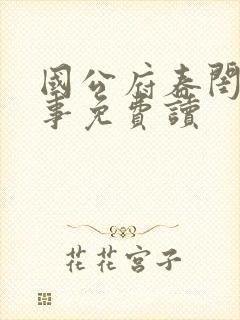 國公府春閨
事免費讀
花花宮子